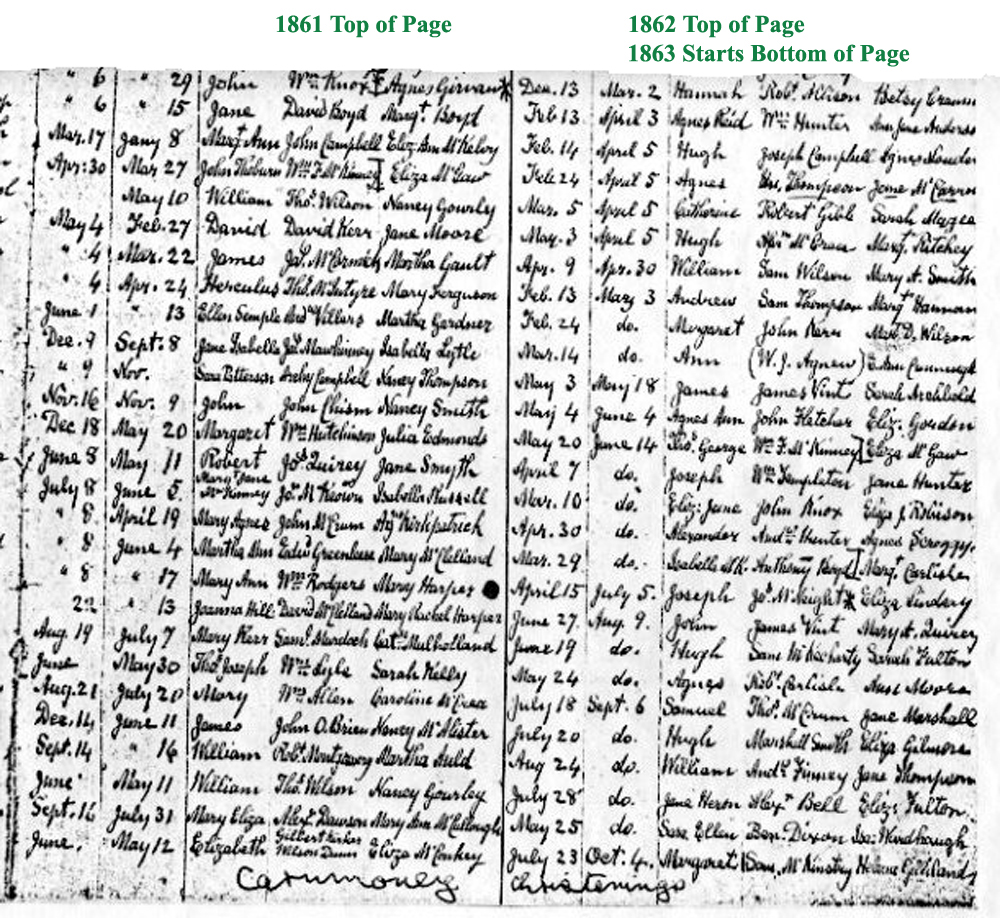 1861 Top of Page
1862 Top of Page
1863 Starts Bottom of Page
" 6 " 29 John Wm Knox Agnes Girvan
" 6 " 15 Jane David Boyd Margt. Boyd
Mar. 17 Jany 8 Margt Ann John Campbell Eliz. Ann McKelvy
Apr. 30 Mar 27 John Thoburn Wm F. McKinney Eliza McGaw
May 10 William Thos. Wilson Nancy Gourly
May 4 Feb. 27 David David Kerr Jane Moore
" 4 Mar. 22 James Jas. McCormick Martha Gault
" 4 Apr. 24 Herculus Thos. McIntyre Mary Ferguson
June 1 " 13 Ellen Semple Andw Villurs Martha Gardner
Dec. 9 Sept. 8 Jane Isabella Jas. Mawhinney Isabella Lytle
" 9 Nov. Sara Patterson Campbell Nancy Thompson
Nov. 16 Nov. 9 John John Chism Nancy Smith
Dec 18 May 20 Margaret Wm Hutchinson Julia Edmonds
June 8 May 11 Robert Jos. Quirey Jane Smyth
July 8 June 5 Mary Jane McKinney Jas. McKeown Isabella Russell
" 8 April 19 Mary Agnes John McCrum Ags Kirkpatrick
" 8 June 4 Martha Ann Greenlease Mary McClelland
" 8 " 17 Mary Ann Wm Rodgers Mary Harper
22 " 13 Joanna Hill David McClelland Mary Rachel Harper
Aug. 19 July 7 Mary Kerr Saml. Murdoch Cathe Mulholland
June May 30 Thos Joseph Wm Lyle Sarah Kelly
Aug. 21 July 20 Mary Wm Allen Caroline McCrea
Dec. 14 June 11 James John O'Brien Nancy McAlister
Sept. 14 " 16 William Robt. Montgomery Martha Auld
June May 11 William Thos. Wilson Nancy Gourley
Sept. 16 July 31 Mary Eliza Alexr Dawson Mary Ann McCullough
June. May 12 Elizabeth Gilbert Parker Wilson Dunn Eliza McConkey
Carnmoney
Dec. 13 Mar. 2 Hannah Robt. Allison Betsy
Feb 13 April 3 Agnes Reid Wm Hunter Ann Jane
Feb. 14 April 5 Hugh Joseph Campbell Agnes
Feb 24 April 5 Agnes Thompson Jane
Mar. 5 April 5 Catherine Robert Gibb Sarah Magee
May. 3 April 5 Hugh Margt. Ritchey
Apr. 9 Apr. 30 William Sam Wilson Mary A. Smith
Feb. 13 May 3 Andrew Sam Thompson Margt Hannan
Feb. 24 do. Margaret John Kerr D. Wilson
Mar. 14 do. Ann (W. J. Agnew)
May 3 May 18 James James Vint Sarah Archbold
May 4 June 4 Agnes Ann John Fletcher Eliz. Gordon
May 20 June 14 Thos. George Wm F. McKinney Eliza McGaw
April 7 do. Joseph Wm Templeton Jane Hunter
Mar. 10 do. Eliz: Jane John Knox Eliza J. Robinson
Apr. 30 do. Alexander Andw Hunter Agnes Scroggy.
Mar. 29 do. Isabella McK. Anthony Boyd Margt. Carlisle
April 15 July 5. Joseph Jas. McKeight Eliza Lindsay
June 27 Aug. 9. John James Vint Mary A. Quirey
June 19 do. Hugh Sarah Fulton
May 24 do. Agnes Robt. Carlisle Moore
July 18 Sept. 6 Samuel Thos. McCrum Jane Marshall
July 20 do. Hugh Marshall Smith Eliza Gilmore
Aug 24 do. William Andw Finney Jane Thompson
July 28 do. Jane Heron Alexr Bell Eliz: Fulton
May 25 do. Sara Ellen Ben. Dixon Isa:
July 23 Oct. 4. Margaret Sam. McKinstry Helena Gilliland
Christenings